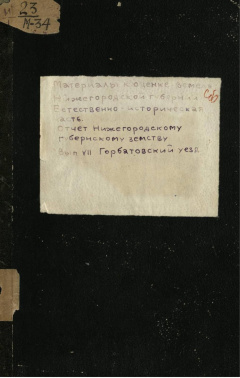 23
М-34
Материалы к оценке земель
Нижегородской губернии
Естественно-историческая
часть.
Отчет Нижегородскому
губернскому земству
Вып VII Горбатовский уезд